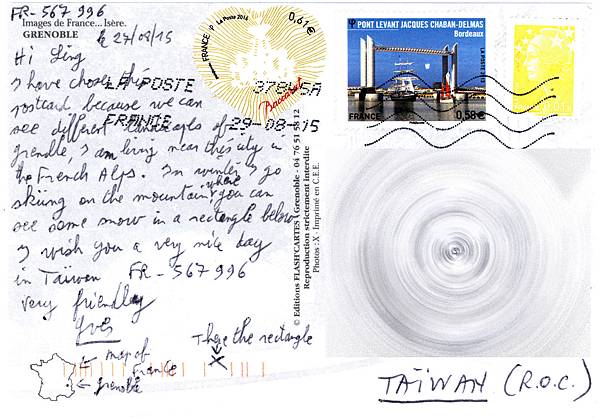 FR-567 996
Images de France... Isère.
GRENOBLE
le 27/08/15
Hi Ling
I have chosen this
postcard because we can
see different landscapes of
grenoble, I am living near this city in
the French Alps. In winter I go
skiing on the mountain where you can
see some snow in a rectangle below
I wish you a very nice day
in Taïwan FR-567 996
very friendly
Yves
There the rectangle
X
map of
France
grenoble
LA POSTE 37845A
FRANCE 29-08-15
FRANCE
La Poste 2014
0,61€
Baccarat
© Editions FLASH'CARTES (Grenoble - 04 76 51 58 12
Reproduction strictement interdite
Photos : X - Imprimé en C.E.E.
PONT LEVANT JACQUES CHABAN-DELMAS
Bordeaux
FRANCE
0,58€
TAÏWAN (R.O.C.)